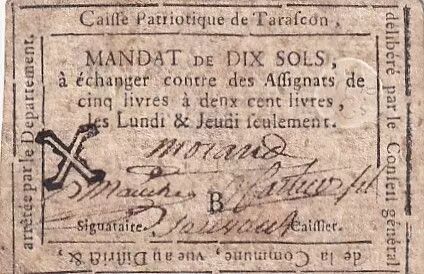 Caisse Patriotique de Tarascon,
délibéré par le Conseil général
de la Commune, vue au District &
arrêtée par le Département.
MANDAT DE DIX SOLS,
à échanger contre des Assignats de
cinq livres à deux cent livres,
les Lundi & Jeudi seulement.
morand
B
Signataire. Caissier.